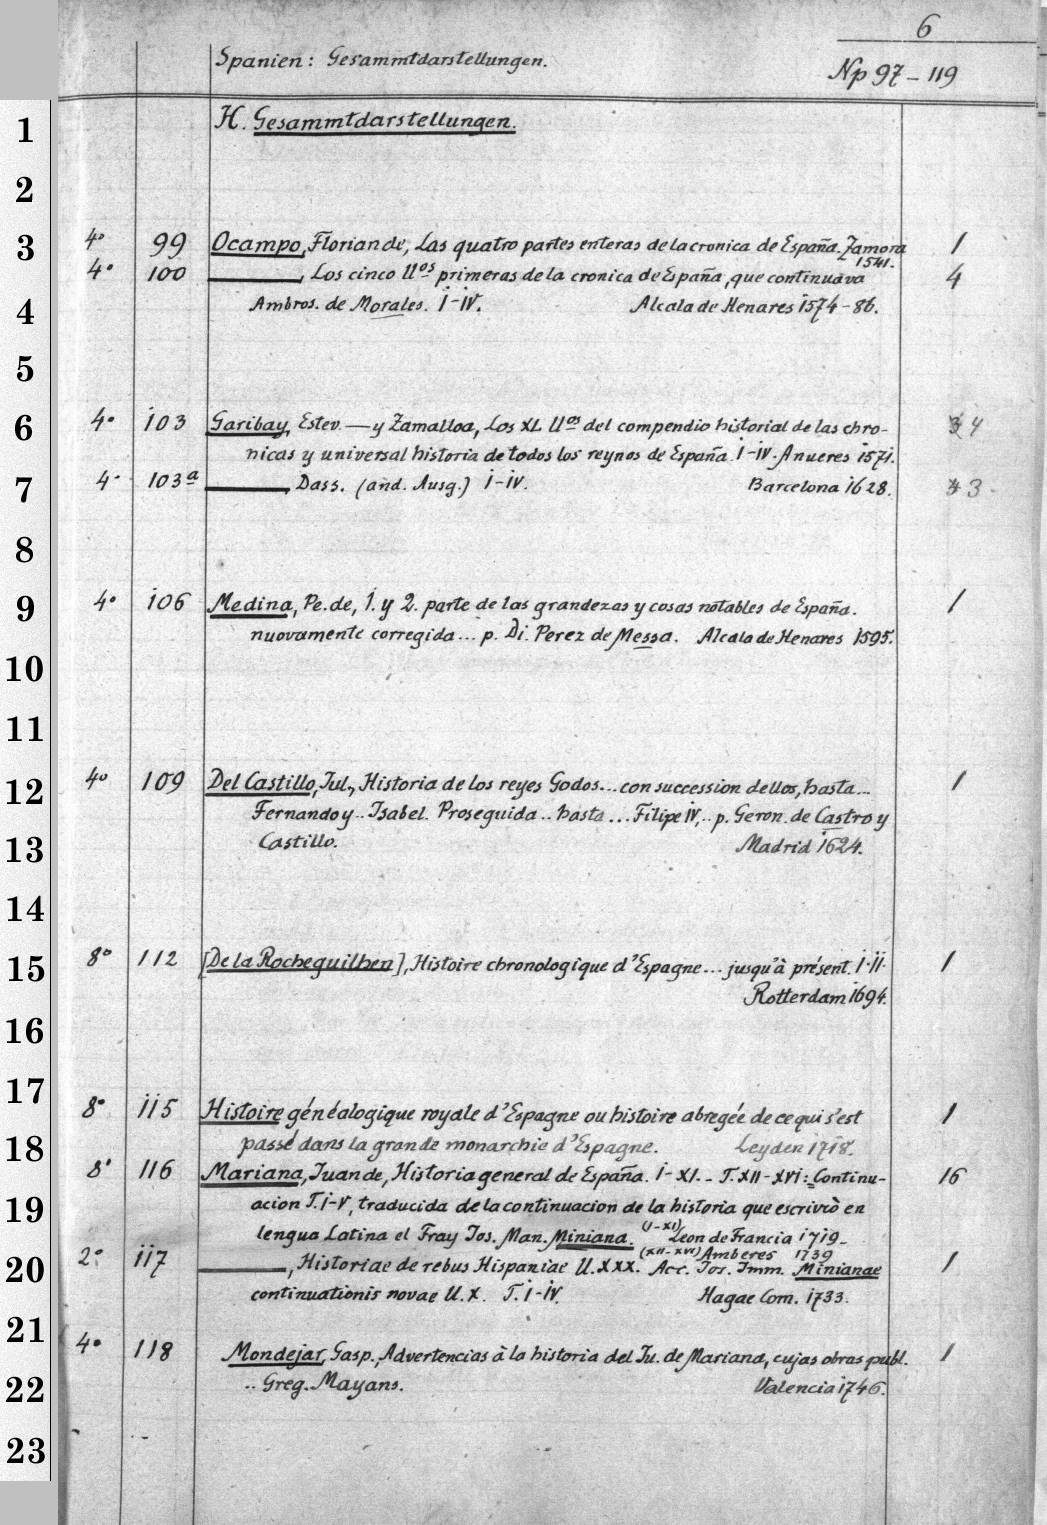 6
Spanien: Gesammtdarstellungen.
Np 97 - 119
1 H. Gesammtdarstellungen.
2
3 4° 99 Ocampo, Florian de, Las quatro partes enteras de la cronica de España. Zamora 1
1541.
4° 100 ———, Los cinco ll͟os primeras de la cronica de Epaña, que continuava 4
4 Ambros. de Morales. I-IV. Alcala de Henares 1574-86.
5
6 4° 103 Garibay, Estev. — y Zamalloa, Los XL ll͟os del compendio historial de las chro- 4
nicas y universal historia de todos los reynos de España I-IV. Anueres 1571.
7 4° 103a ———, Dass. (and. Ausg.) I-IV. Barcelona 1628. 3
8
9 4° 106 Medina, Pe. de, 1. y 2. parte de las grandezas y cosas notables de España. 1
nuovamente corregida... p. Di. Perez de Messa. Alcala de Henares 1595.
10
11
12 4° 109 Del Castillo, Jul., Historia de los reyes Godos... con succession dellos, hasta... 1
Fernando y.. Isabel. Proseguida.. hasta... Filipe IV,.. p. Geron. de Castro y
13 Castillo. Madrid 1624.
14
15 8° 112 [De la Rocheguilhen], Histoire chronologique d'Espagne... jusqu'à présent. I.II. 1
Rotterdam 1694.
16
17 8° 115 Histoire généalogique royale d'Espagne ou histoire abregée de ce qui s'est 1
18 passé dans la grande monarchie d'Espagne. Leyden 1718.
8° 116 Mariana, Juan de, Historia general de España. I-XI.- T. XII-XVI: Continu- 16
19 acion T. I-V, traducida de la continuacion de la historia que escriviò en
lengua Latina el Fray Jos. Man. Miniana. (I-XI) Leon de Francia 1719-
(XII-XVI) Amberes 1739
20 2° 117 ———, Historiae de rebus Hispaniae ll. XXX. Acc. Jos. Imm. Minianae 1
continuationis novae ll. X. T. I-IV. Hagae Com. 1733.
21
4° 118 Mondejar, Gasp., Advertencias à la historia del Ju. de Mariana, cujas obras publ. 1
22 .. Greg. Mayans. Valencia 1746.
23